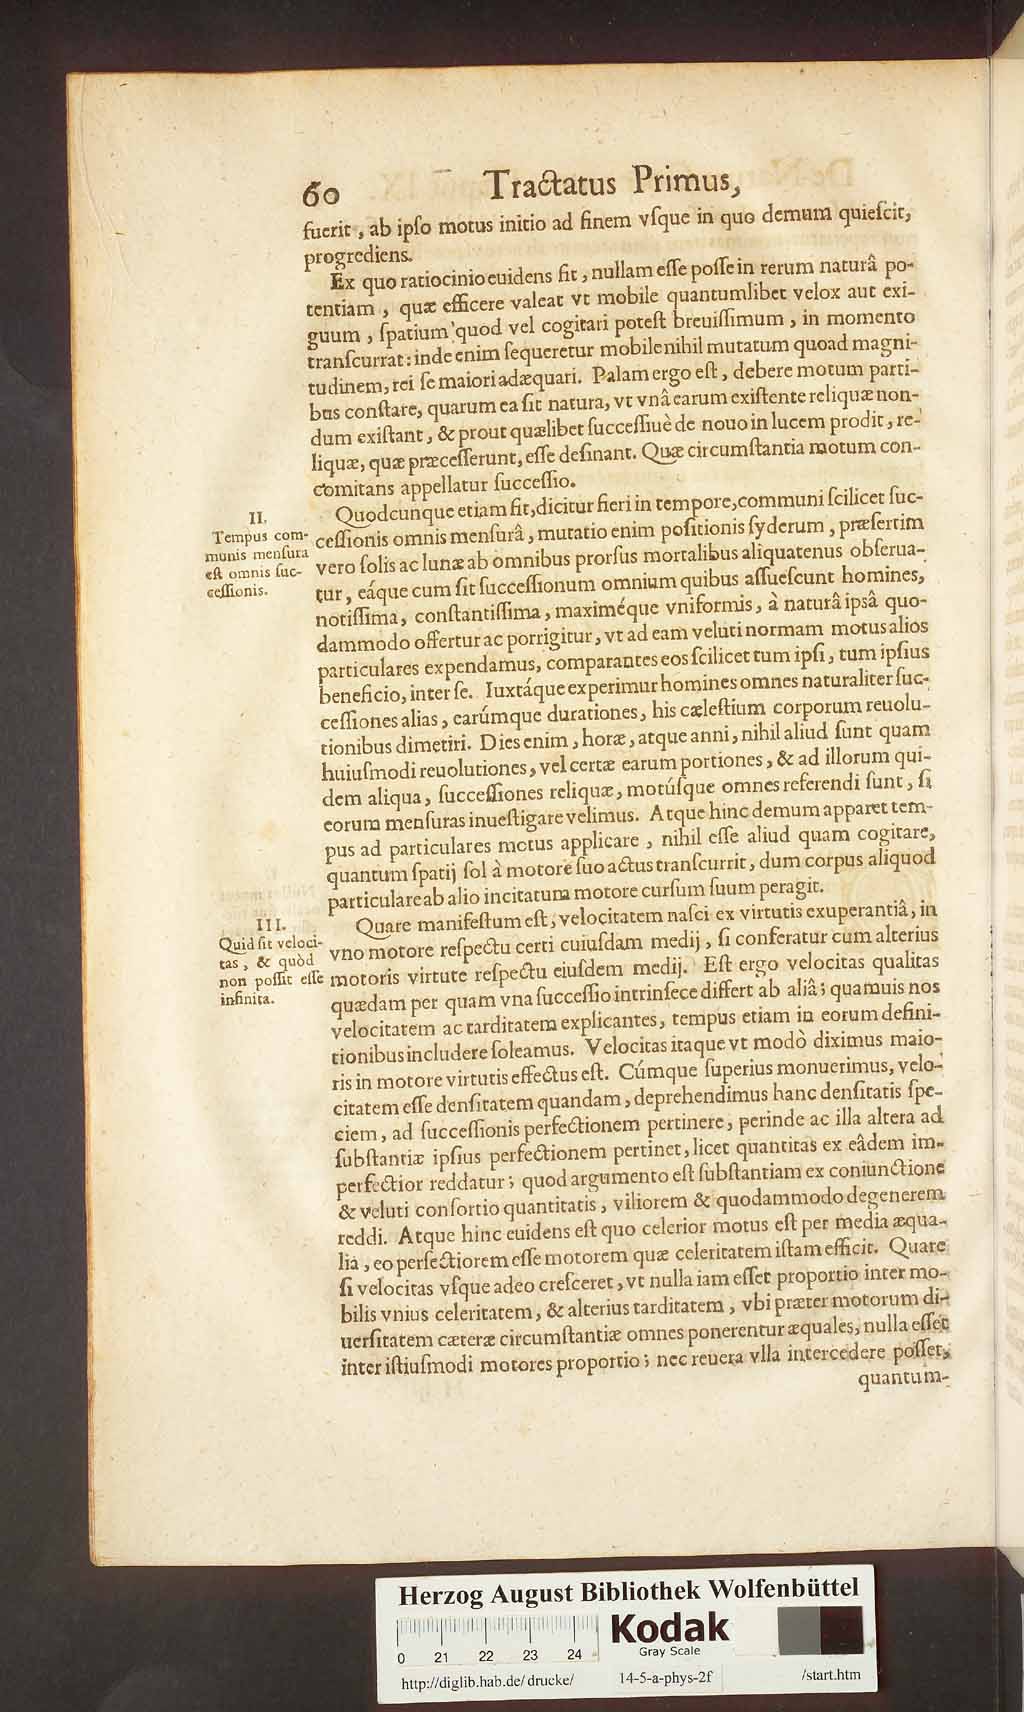 60 Tractatus Primus,
fuerit, ab ipſo motus initio ad finem vſque in quo demum quieſcit,
progrediens.
Ex quo ratiocinio euidens fit, nullam eſſe poſſe in rerum naturâ po-
tentiam, quæ efficere valeat vt mobile quantumlibet velox aut exi-
guum, ſpatium quod vel cogitari poteſt breuiſſimum, in momento
tranſcurrat: inde enim ſequeretur mobile nihil mutatum quoad magni-
tudinem, rei ſe maiori adæquari. Palam ergo eſt, debere motum parti-
bus conſtare, quarum ea ſit natura, vt vnâ earum exiſtente reliquæ non-
dum exiſtant, & prout quælibet ſucceſſiuè de nouo in lucem prodit, re-
liquæ, quæ præceſſerunt, eſſe deſinant. Quæ circumſtantia motum con-
comitans appellatur ſucceſſio.
II.
Tempus com-
munis menſura
eſt omnis ſuc-
ceſſionis.
Quodcunque etiam fit, dicitur fieri in tempore, communi ſcilicet ſuc-
ceſſionis omnis menſurâ, mutatio enim poſitionis ſyderum, præſertim
vero ſolis ac lunæ ab omnibus prorſus mortalibus aliquatenus obſerua-
tur, eáque cum ſit ſucceſſionum omnium quibus aſſueſcunt homines,
notiſſima, conſtantiſſima, maximéque vniformis, à naturâ ipsâ quo-
dammodo offertur ac porrigitur, vt ad eam veluti normam motus alios
particulares expendamus, comparantes eos ſcilicet tum ipſi, tum ipſius
beneficio, inter ſe. Iuxtáque experimur homines omnes naturaliter ſuc-
ceſſiones alias, earúmque durationes, his cæleſtium corporum reuolu-
tionibus dimetiri. Dies enim, horæ, atque anni, nihil aliud ſunt quam
huiuſmodi reuolutiones, vel certæ earum portiones, & ad illorum qui-
dem aliqua, ſucceſſiones reliquæ, motúſque omnes referendi ſunt, ſi
eorum menſuras inueſtigare velimus. Atque hinc demum apparet tem-
pus ad particulares motus applicare, nihil eſſe aliud quam cogitare,
quantum ſpatij ſol à motore ſuo actus tranſcurrit, dum corpus aliquod
particulare ab alio incitatum motore curſum ſuum peragit.
III.
Quid ſit veloci-
tas, & quòd
non poſſit eſſe
infinita.
Quare manifeſtum eſt, velocitatem naſci ex virtutis exuperantiâ, in
vno motore reſpectu certi cuiuſdam medij, ſi conferatur cum alterius
motoris virtute reſpectu eiuſdem medij. Eſt ergo velocitas qualitas
quædam per quam vna ſucceſſio intrinſece differt ab aliâ; quamuis nos
velocitatem ac tarditatem explicantes, tempus etiam in eorum defini-
tionibus includere ſoleamus. Velocitas itaque vt modò diximus maio-
ris in motore virtutis effectus eſt. Cúmque ſuperius monuerimus, velo-
citatem eſſe denſitatem quandam, deprehendimus hanc denſitatis ſpe-
ciem, ad ſucceſſionis perfectionem pertinere, perinde ac illa altera ad
ſubſtantiæ ipſius perfectionem pertinet, licet quantitas ex eâdem im-
perfectior reddatur; quod argumento eſt ſubſtantiam ex coniunctione
& veluti conſortio quantitatis, viliorem & quodammodo degenerem
reddi. Atque hinc euidens eſt quo celerior motus eſt per media æqua-
lia, eo perfectiorem eſſe motorem quæ celeritatem iſtam efficit. Quare
ſi velocitas vſque adeo creſceret, vt nulla iam eſſet proportio inter mo-
bilis vnius celeritatem, & alterius tarditatem, vbi præter motorum di-
uerſitatem cæteræ circumſtantiæ omnes ponerentur æquales, nulla eſſet
inter iſtiuſmodi motores proportio; nec reuera vlla intercedere poſſet,
quantum-
Herzog August Bibliothek Wolfenbüttel
0 21 22 23 24
Kodak
Gray Scale
http://diglib.hab.de/drucke/ 14-5-a-phys-2f /start.htm